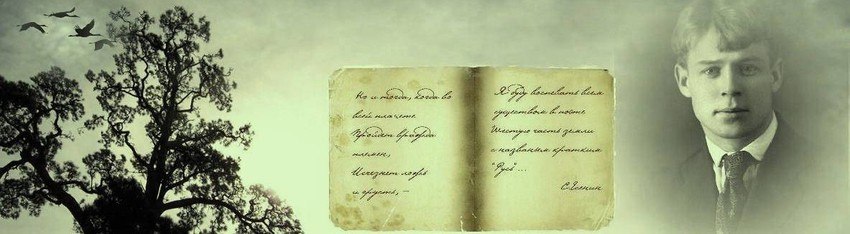 Но и тогда, когда во
всей планете
Пройдет вражда
племен,
Исчезнет ложь
и грусть, –
Я буду воспевать всем
существом в поэте
Шестую часть земли
с названьем кратким
"Русь"...
С.Есенин